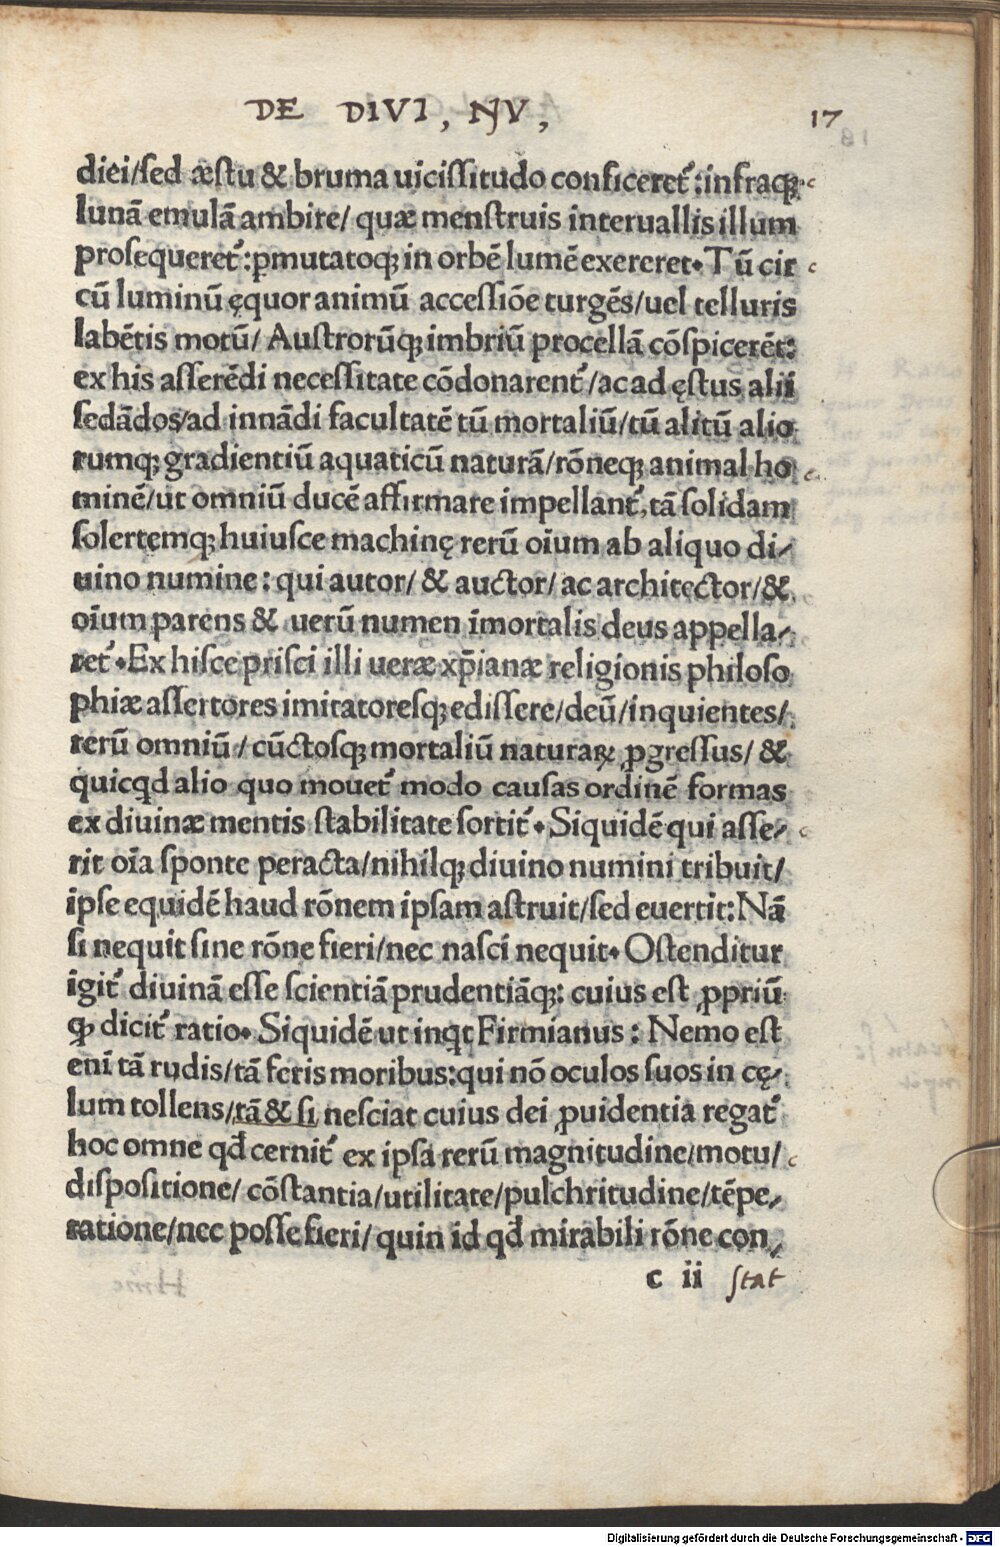 DE DIVI, NV,
17
diei/sed æstu & bruma uicissitudo conficeret᷑:infraqꝫ
lunā emulā ambire/ quæ menstruis interuallis illum
prosequeret᷑:ꝑmutatoqꝫ in orbē lumē exereret. Tū cir
cū luminū ęquor animū accessiōe turgēs/uel telluris
labētis motū/ Austrorūqꝫ imbriū procellā cōspicerēt:
ex his asserēdi necessitate cōdonarent᷑/ac ad ęstus alii
sedādos/ad innādi facultatē tū mortaliū/tū alitū alio
rumqꝫ gradientiū aquaticū naturā/rōneqꝫ animal ho
minē/ut omniū ducē affirmare impellant᷑, tā solidam
solertęmqꝫ huiusce machinę rerū oīum ab aliquo di/
uino numine: qui autor/ & auctor/ ac architector/&
oīum parens & uerū numen īmortalis deus appella/
ret᷑. Ex hisce prisci illi ueræ xp̄ianæ religionis philoso
phiæ assertores imitatoresqꝫ edissere/deū/inquientes/
rerū omniū/ cūctosqꝫ mortaliū naturaꝝ ꝓgressus/ &
quicqd alio quo mouet᷑ modo causas ordinē formas
ex diuinæ mentis stabilitate sortit᷑. Siquidē qui asse/
rit oīa sponte peracta/nihilqꝫ diuino numini tribuit/
ipse equidē haud rōnem ipsam astruit/sed euertit: Nā
si nequit sine rōne fieri/nec nasci nequit. Ostenditur
igit᷑ diuinā esse scientiā prudentiāqꝫ: cuius est ꝓpriū
ꝙ dicit᷑ ratio. Siquidē ut inqt Firmianus: Nemo est
enī tā rudis/tā feris moribus:qui nō oculos suos in cę/
lum tollens/tā & si nesciat cuius dei ꝓuidentia regat᷑
hoc omne qđ cernit᷑ ex ipsa rerū magnitudine/motu/
dispositione/ cōstantia/utilitate/pulchritudine/tēpe/
ratione/nec posse fieri/ quin id qđ mirabili rōne con/
c ii stat
Digitalisierung gefördert durch die Deutsche Forschungsgemeinschaft - DFG